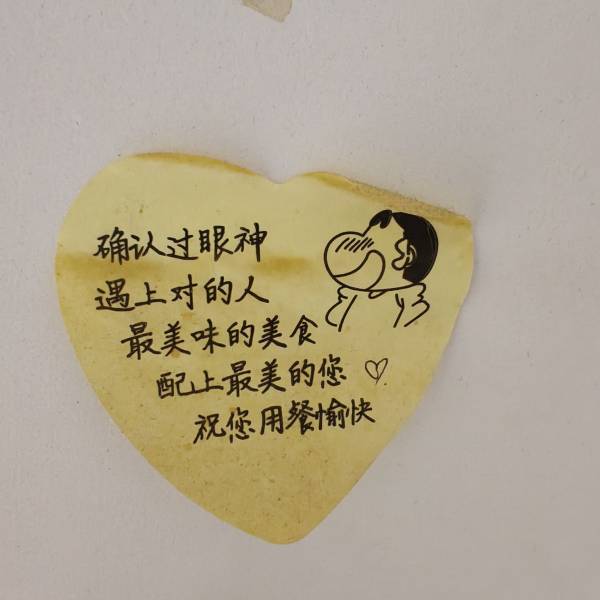 确认过眼神
遇上对的人
最美味的美食
配上最美的您
祝您用餐愉快